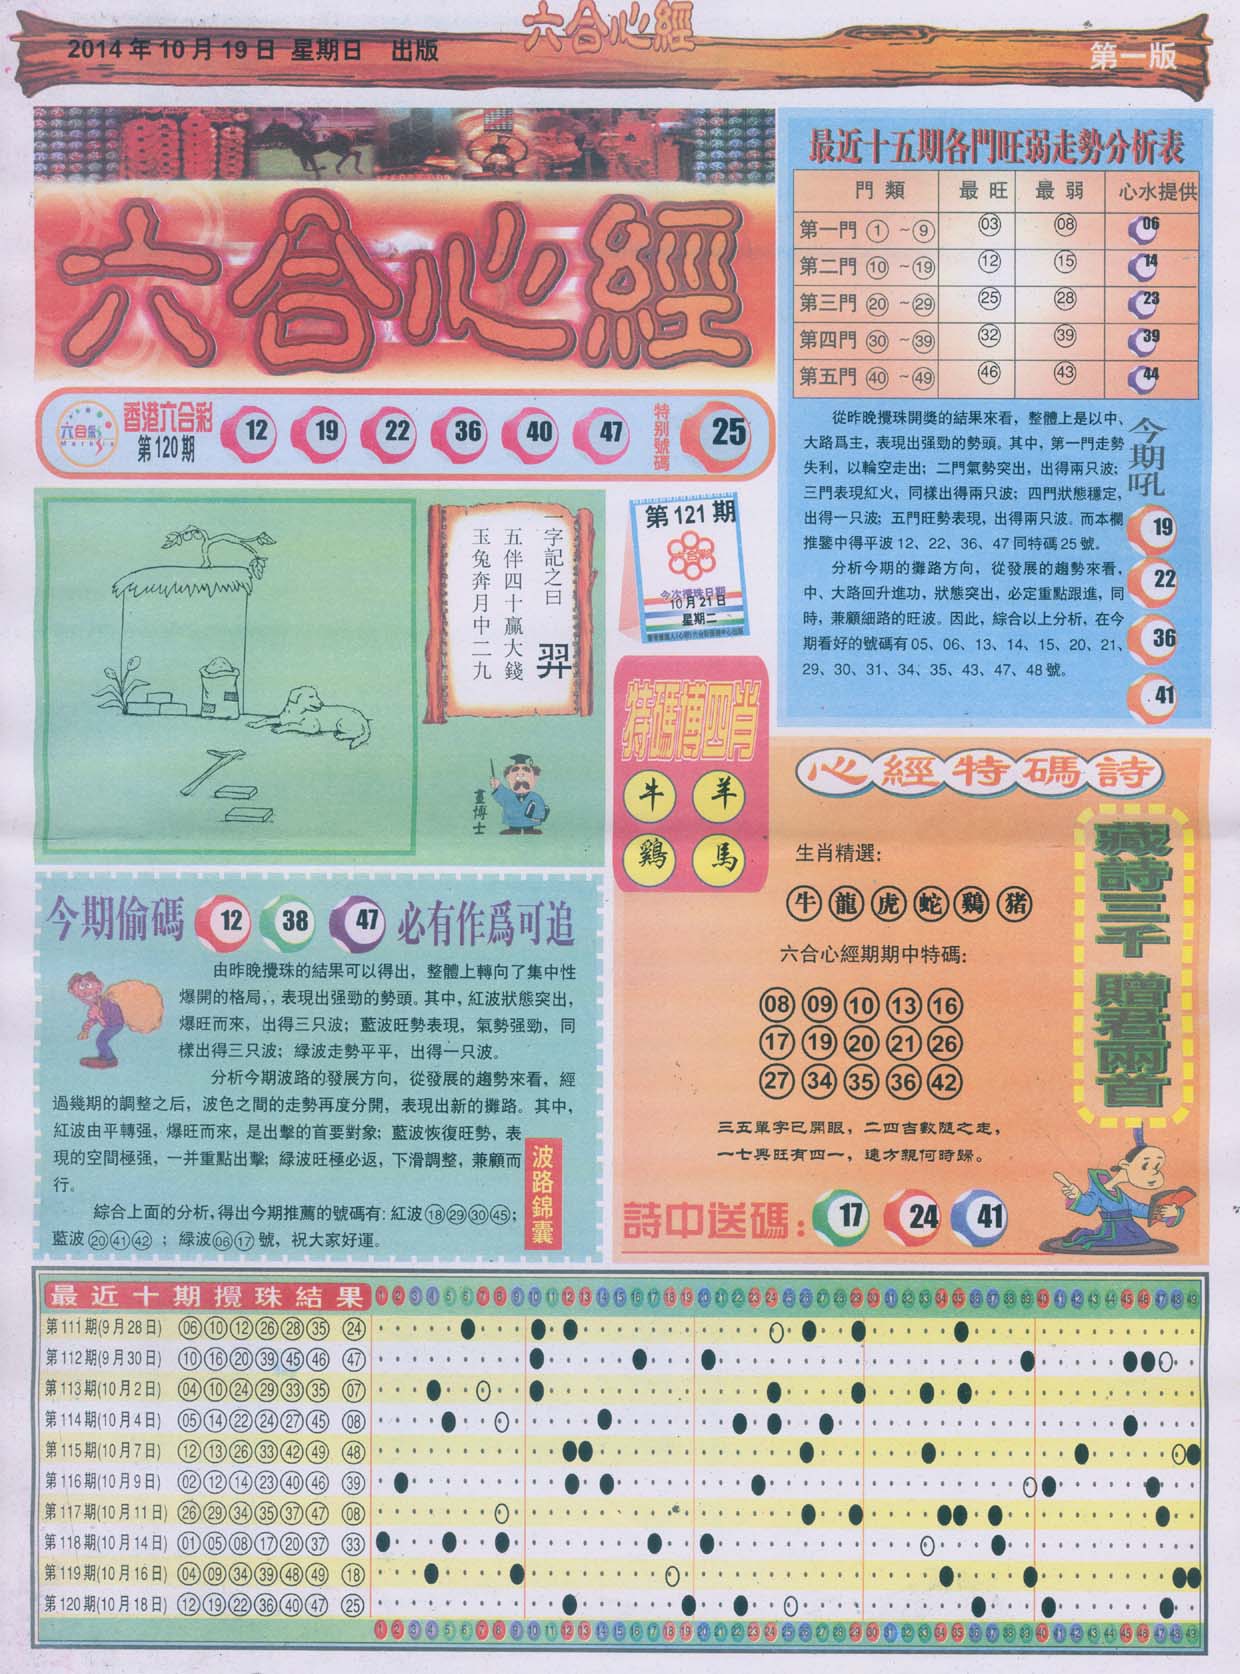 2014年10月19日 星期日 出版
六合心經
第一版
六合心經
六合彩
香港六合彩
第120期
12 19 22 36 40 47
特别號碼
25
最近十五期各門旺弱走勢分析表
門類 最旺 最弱 心水提供
第一門 ① ~⑨ 03 08 06
第二門 ⑩ ~⑲ 12 15 14
第三門 ⑳ ~㉙ 25 28 23
第四門 ㉚ ~㊴ 32 39 39
第五門 ㊵ ~㊾ 46 43 44
從昨晚攪珠開獎的結果來看，整體上是以中、
大路爲主，表現出强勁的勢頭。其中，第一門走勢
失利，以輪空走出；二門氣勢突出，出得兩只波；
三門表現紅火，同樣出得兩只波；四門狀態穩定，
出得一只波；五門旺勢表現，出得兩只波。而本欄
推鑒中得平波12、22、36、47同特碼25號。
分析今期的攤路方向，從發展的趨勢來看，
中、大路回升進功，狀態突出，必定重點跟進，同
時，兼顧細路的旺波。因此，綜合以上分析，在今
期看好的號碼有05、06、13、14、15、20、21、
29、30、31、34、35、43、47、48號。
今期吼
19
22
36
41
一字記之曰 羿
五伴四十贏大錢
玉兔奔月中二九
畫博士
第121期
六合彩
今次攪珠日期
10月21日
星期二
特碼博四肖
牛 羊
鷄 馬
心經特碼詩
生肖精選：
牛 龍 虎 蛇 鷄 猪
六合心經期期中特碼：
08 09 10 13 16
17 19 20 21 26
27 34 35 36 42
三五單字已開眼，二四吉數隨之走，
一七興旺有四一，遠方親何時歸。
詩中送碼： 17 24 41
藏詩三千 贈君兩首
今期偷碼 12 38 47 必有作爲可追
由昨晚攪珠的結果可以得出，整體上轉向了集中性
爆開的格局，，表現出强勁的勢頭。其中，紅波狀態突出，
爆旺而來，出得三只波；藍波旺勢表現，氣勢强勁，同
樣出得三只波；緑波走勢平平，出得一只波。
分析今期波路的發展方向，從發展的趨勢來看，經
過幾期的調整之后，波色之間的走勢再度分開，表現出新的攤路。其中，
紅波由平轉强，爆旺而來，是出擊的首要對象；藍波恢復旺勢，表
現的空間極强，一并重點出擊；緑波旺極必返，下滑調整，兼顧而
行。
綜合上面的分析，得出今期推薦的號碼有：紅波⑱㉙㉚㊺；
藍波⑳㊶㊷；緑波06⑰號，祝大家好運。
波路錦囊
最近十期攪珠結果 1 2 3 4 5 6 7 8 9 10 11 12 13 14 15 16 17 18 19 20 21 22 23 24 25 26 27 28 29 30 31 32 33 34 35 36 37 38 39 40 41 42 43 44 45 46 47 48 49
第111期(9月28日) 06 10 12 26 28 35 24
第112期(9月30日) 10 16 20 39 45 46 47
第113期(10月2日) 04 10 24 29 33 35 07
第114期(10月4日) 05 14 22 24 27 45 08
第115期(10月7日) 12 13 26 33 42 49 48
第116期(10月9日) 02 12 14 23 40 46 39
第117期(10月11日) 26 29 34 35 37 47 08
第118期(10月14日) 01 05 08 17 20 37 33
第119期(10月16日) 04 09 34 39 48 49 18
第120期(10月18日) 12 19 22 36 40 47 25
1 2 3 4 5 6 7 8 9 10 11 12 13 14 15 16 17 18 19 20 21 22 23 24 25 26 27 28 29 30 31 32 33 34 35 36 37 38 39 40 41 42 43 44 45 46 47 48 49